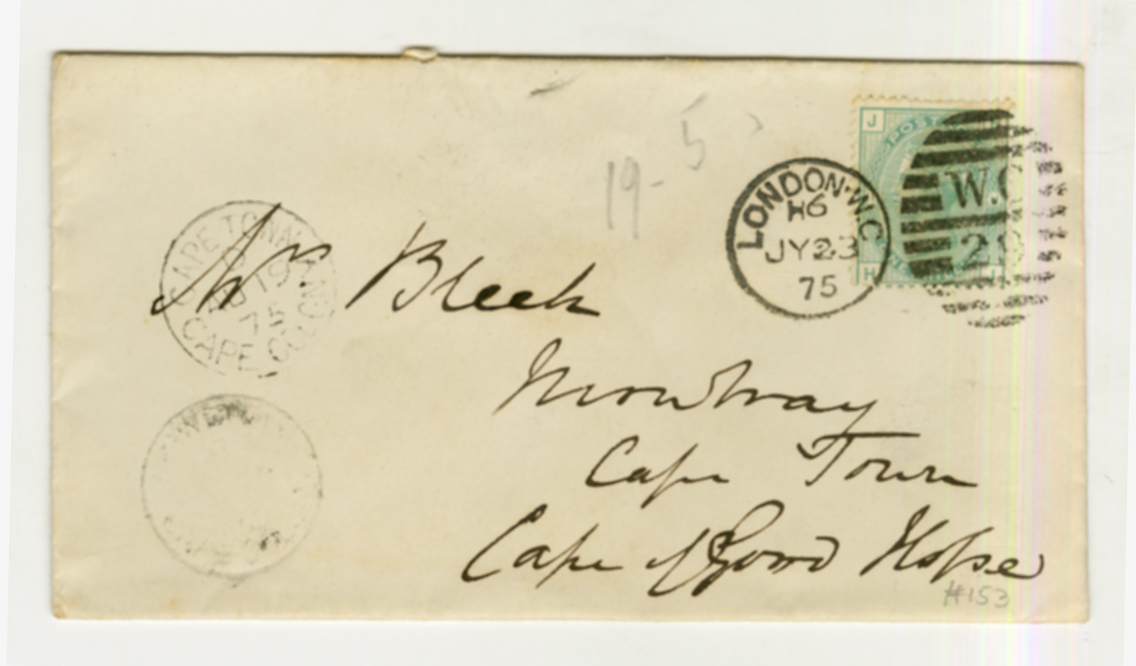 19-5
J
POST
LONDON·W.C
H6
JY23
75
W.C
29
H
J
CAPE TOWN
19
75
CAPE COLONY
Mrs Bleek
Mowbray
Cape Town
Cape of Good Hope
#153